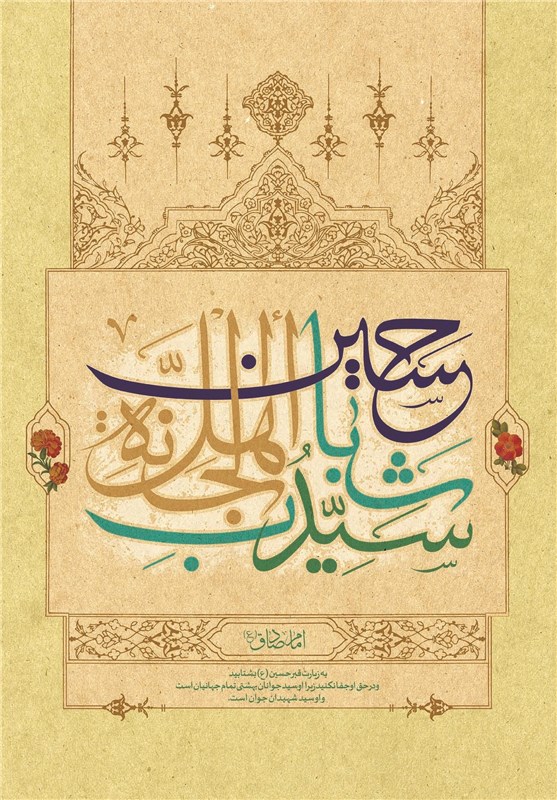 حسین
سَیِّدُ شباب
أهل الجَنَّة
امام صادق (ع)
به زیارت قبر حسین (ع) بشتابید
و در حق او جفا نکنید زیرا او سید جوانان بهشتی تمام جهانیان است
و او سید شهیدان جوان است.